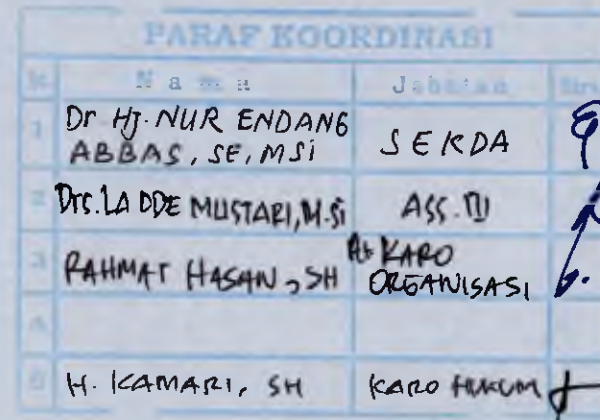 PARAF KOORDINASI
N a m a Jabatan
1 Dr Hj. NUR ENDANG ABBAS, SE, MSi SEKDA
2 Drs. LA ODE MUSTARI, M.Si ASS. III
3 RAHMAT HASAN, SH Plt KARO ORGANISASI
4
5 H. KAMARI, SH KARO HUKUM